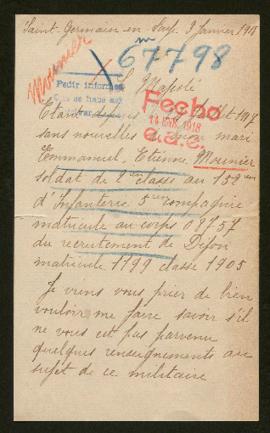 Saint-Germain en Laye 9 Janvier 1918
Mounier
67798
Pedir informes
Majesté
Fecho
14 ENE. 1918
Etant depuis
sans nouvelles de mon mari
Emmanuel, Etienne, Mounier
soldat de 2eme classe au 158eme
d'Infanterie 5eme compagnie
matricule au corps 09757
du recrutement de Dijon
matricule 1799 classe 1905
Je viens vous prier de bien
vouloir me faire savoir s'il
ne vous est pas parvenu
quelques renseignements au
sujet de ce militaire